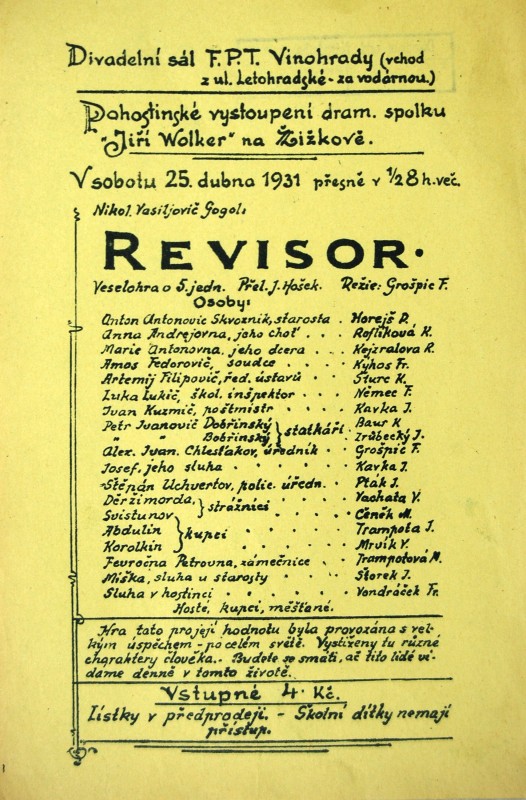 Divadelní sál F.P.T. Vinohrady (vchod
z ul. Letohradské - za vodárnou.)
Pohostinské vystoupení dram. spolku
"Jiří Wolker" na Žižkově.
V sobotu 25. dubna 1931 přesně v 1/2 8 h. več.
Nikol. Vasiljovič Gogol:
REVISOR.
Veselohra o 5. jedn. Přel. J. Hošek. Režie: Grošpic F.
Osoby:
Anton Antonovic Skvozník, starosta . Horejš R.
Anna Andrejovna, jeho choť . . . Roflíková K.
Marie Antonovna, jeho dcera . . . Kejzralova R.
Amos Fedorovič, soudce . . . . Kýhos Fr.
Artemij Filipovič, řed. ústavů . . . Šturc K.
Luka Lukič, škol. inšpektor . . . . Němec F.
Ivan Kuzmič, poštmistr . . . . Kavka J.
Petr Ivanovič Dobřinský } statkáři . Baur K
" " Bobřinský Zrůbecký J.
Alex. Ivan. Chlesťakov, úředník . . Grošpic F.
Josef, jeho sluha . . . . . . Kavka J.
Stěpán Uchvertov, polic. úředn. . Pták J.
Děržimorda, } strážníci . . . Vachata V.
Svistunov . . . Ceněk M.
Abdulin } kupci . . . Trampota J.
Korolkin . . . Mrvík V.
Fevročna Petrovna, zámečnice . . Trampotová M.
Míška, sluha u starosty . . . . Štorek J.
Sluha v hostinci . . . . . . Vondráček Fr.
Hosté, kupci, měšťané.
Hra tato pro její hodnotu byla provozána s vel-
kým úspěchem - po celém světě. Vystiženy tu různé
charaktery člověka. - Budete se smáti, ač tito lidé ví-
dáme denně v tomto životě.
Vstupné 4. Kč.
Lístky v předprodeji. - Školní dítky nemají
přístup.